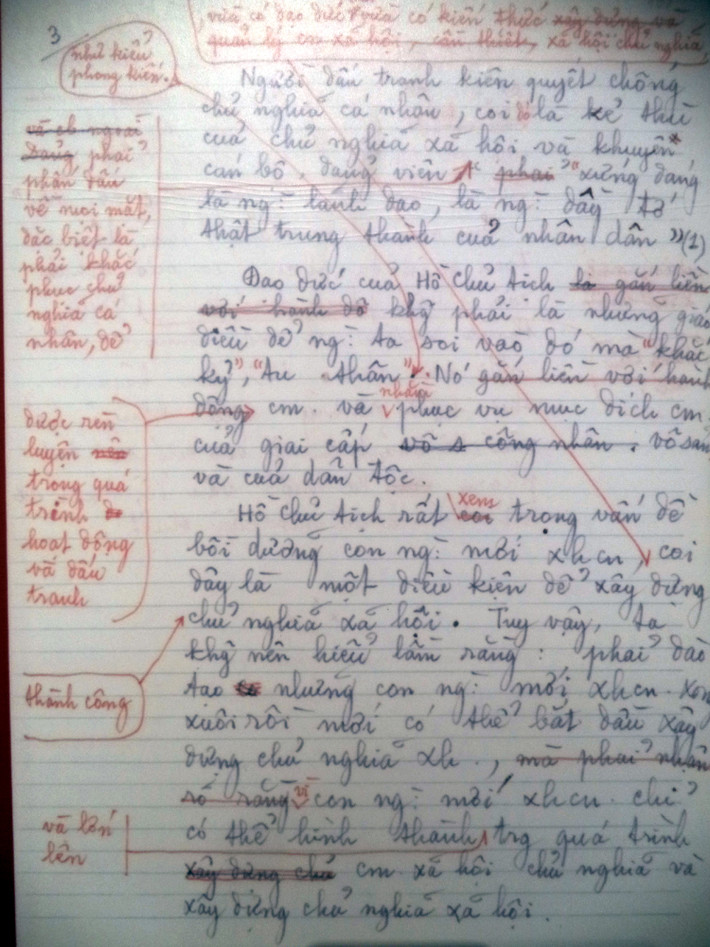 3
vừa có đạo đức vừa có kiến thức xây dựng và
quản lý cm xã hội, cần thiết, xã hội chủ nghĩa,
như kiểu
phong kiến.
Người đấu tranh kiên quyết chống
chủ nghĩa cá nhân, coi đó là kẻ thù
của chủ nghĩa xã hội và khuyên
cán bộ, đảng viên " phải "xứng đáng
là ng: lãnh đạo, là ng: đầy tớ
thật trung thành của nhân dân" (1)
phải
phấn đấu
về mọi mặt,
đặc biệt là
phải khắc
phục chủ
nghĩa cá
nhân, để
Đạo đức của Hồ Chủ tịch là gắn liền
với hành độ khg phải là những giáo
điều để ng: ta soi vào đó mà "khắc
kỷ", "tu thân". Nó gắn liền với hành
động cm. và nhằm phục vụ mục đích cm.
của giai cấp vô s công nhân. vô sản
và của dân tộc.
được rèn
luyện nên
trong quá
trình
hoạt động
và đấu
tranh
Hồ Chủ tịch rất coi xem trọng vấn đề
bồi dưỡng con ng: mới xhcn, coi
đây là một điều kiện để xây dựng
chủ nghĩa xã hội. Tuy vậy, ta
khg nên hiểu lầm rằng: phải đào
tạo những con ng: mới xhcn. xong
xuôi rồi mới có thể bắt đầu xây
dựng chủ nghĩa xh., mà phải nhận
rõ ràng vì con ng: mới xhcn. chỉ
có thể hình thành trg quá trình
xây dựng chủ cm xã hội chủ nghĩa và
xây dựng chủ nghĩa xã hội.
thành công
và lớn
lên